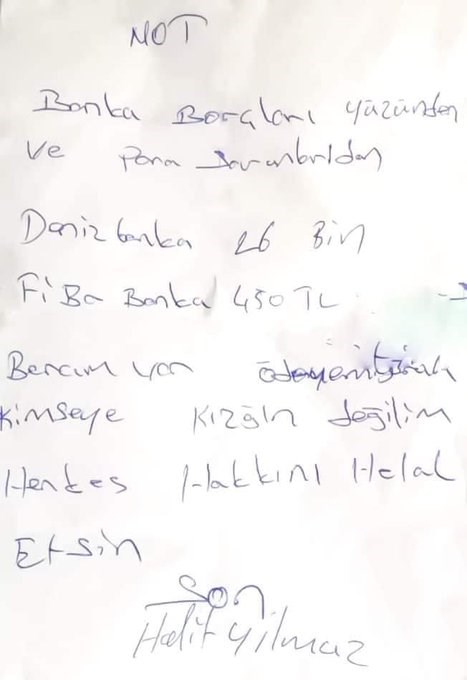 NOT
Banka Borçları yüzünden
ve para
Denizbanka 26 Bin
FiBa Banka 450 TL
Borcum var
kimseye kızgın değilim
Herkes Hakkını Helal
Etsin
Son
Halit Yilmaz